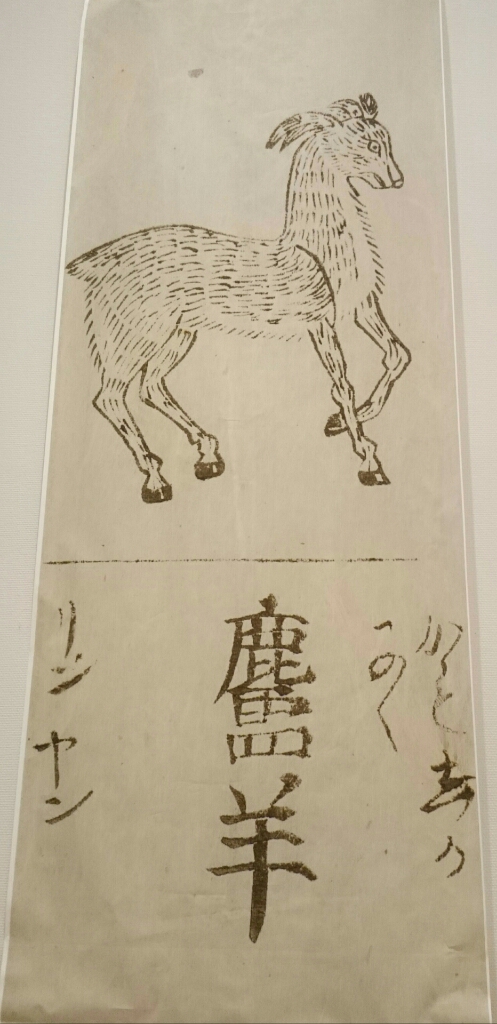 かも志か
麢羊
リンヤン